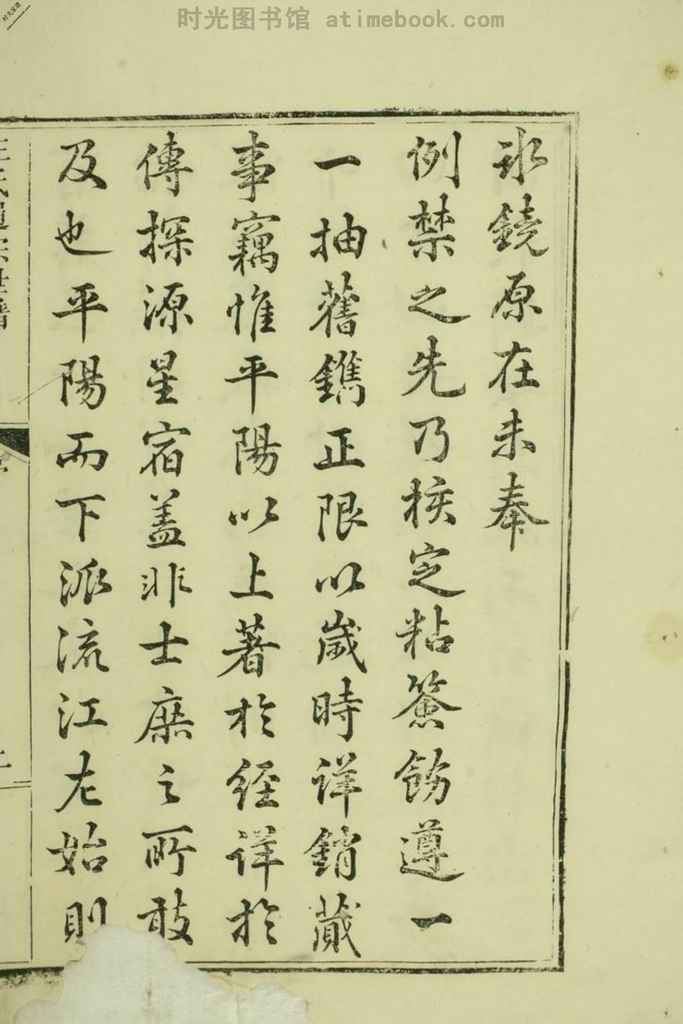 时光图书馆 atimebook.com
鐃原在未奉
例禁之先乃核定粘簽飭遵一
一抽舊鐫正限以歲時詳銷蕆
事竊惟平陽以上著於經詳於
傳探源星宿蓋非士庶之所敢
及也平陽而下派流江左始則
汪氏通宗世譜